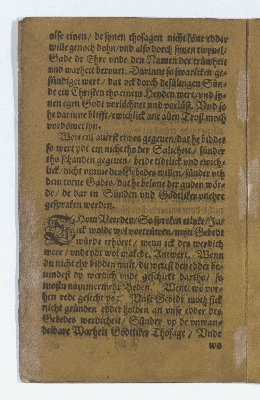 alse einen / de synen thosagen nicht köne edder
wille genoch dohn / und also dorch synen twyuel /
Gade de Ehre unde den Namen der trüwheit
und warheit berouet. Darinne so swarliken ge-
sündiget wert / dat ock dorch desülutigen Sün-
de ein Christen tho einem Heyden wert / und sy-
nen egen Godt vorlöchnet und vorlüst. Und so
he darinne blifft / ewichlick ane allen Trost moth
vordömet syn.
Wert em auerst etwes gegeuen / dat he biddet
so wert ydt em nicht tho der Salicheit / sünder
tho schanden gegeuen / beide tidtlick und ewich-
lick / nicht umme des Gebedes willen / sünder uth
dem torne Gades / dat he belone der guden wör-
de / de dar in Sünden und Gödtliker unehre
gespraken werden.
THom Veerden / So spreken etlike / Ja /
ick wolde wol vortruwen / mijn Gebedt
würde erhöret / wenn ick des werdich
were / unde ydt wol makede. Antwert. Wenn
du nicht ehr bidden wult / du wetest den edder be-
uindest dy werdich unde geschicket dartho / so
mostu nümmermehr beden. Wente wo vor-
hen rede gesecht ys: Unse Gebedt moth sick
nicht gründen edder holden an unse edder des
Gebedes werdicheit / Sünder up de unwan-
delbare Warheit Gödtliker Thosage / Unde
wo